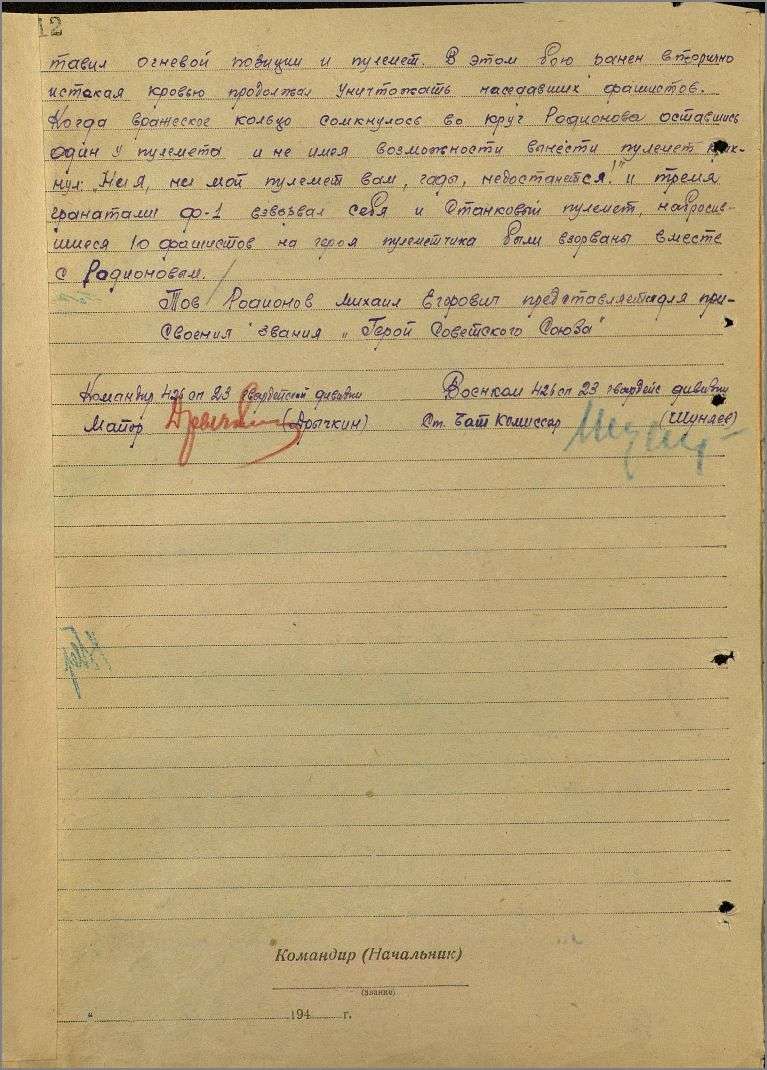 12
тавил огневой позиции и пулемет. В этом бою ранен вторично
истекая кровью продолжал уничтожать наседавших фашистов.
Когда вражеское кольцо сомкнулось во круг Радионова оставшись
один у пулемета и не имея возможности вынести пулемет крик-
нул: "Ни я, ни мой пулемет вам, гады, недостанется!" и тремя
гранатами ф-1 взворвал себя и Станковый пулемет, набросив-
шиеся 10 фашистов на героя пулеметчика были взорваны вместе
с Радионовым.
Тов Родионов Михаил Егорович представляется для при-
своения звания "Герой Советского Союза"
Командир 426 сп 23 гвардейской дивизии
Военком 426 сп 23 гвардейс дивизии
Майор (Дрычкин)
Ст. Бат Комиссар (Шуняев)
Командир (Начальник)
(звание)
" 194 г.